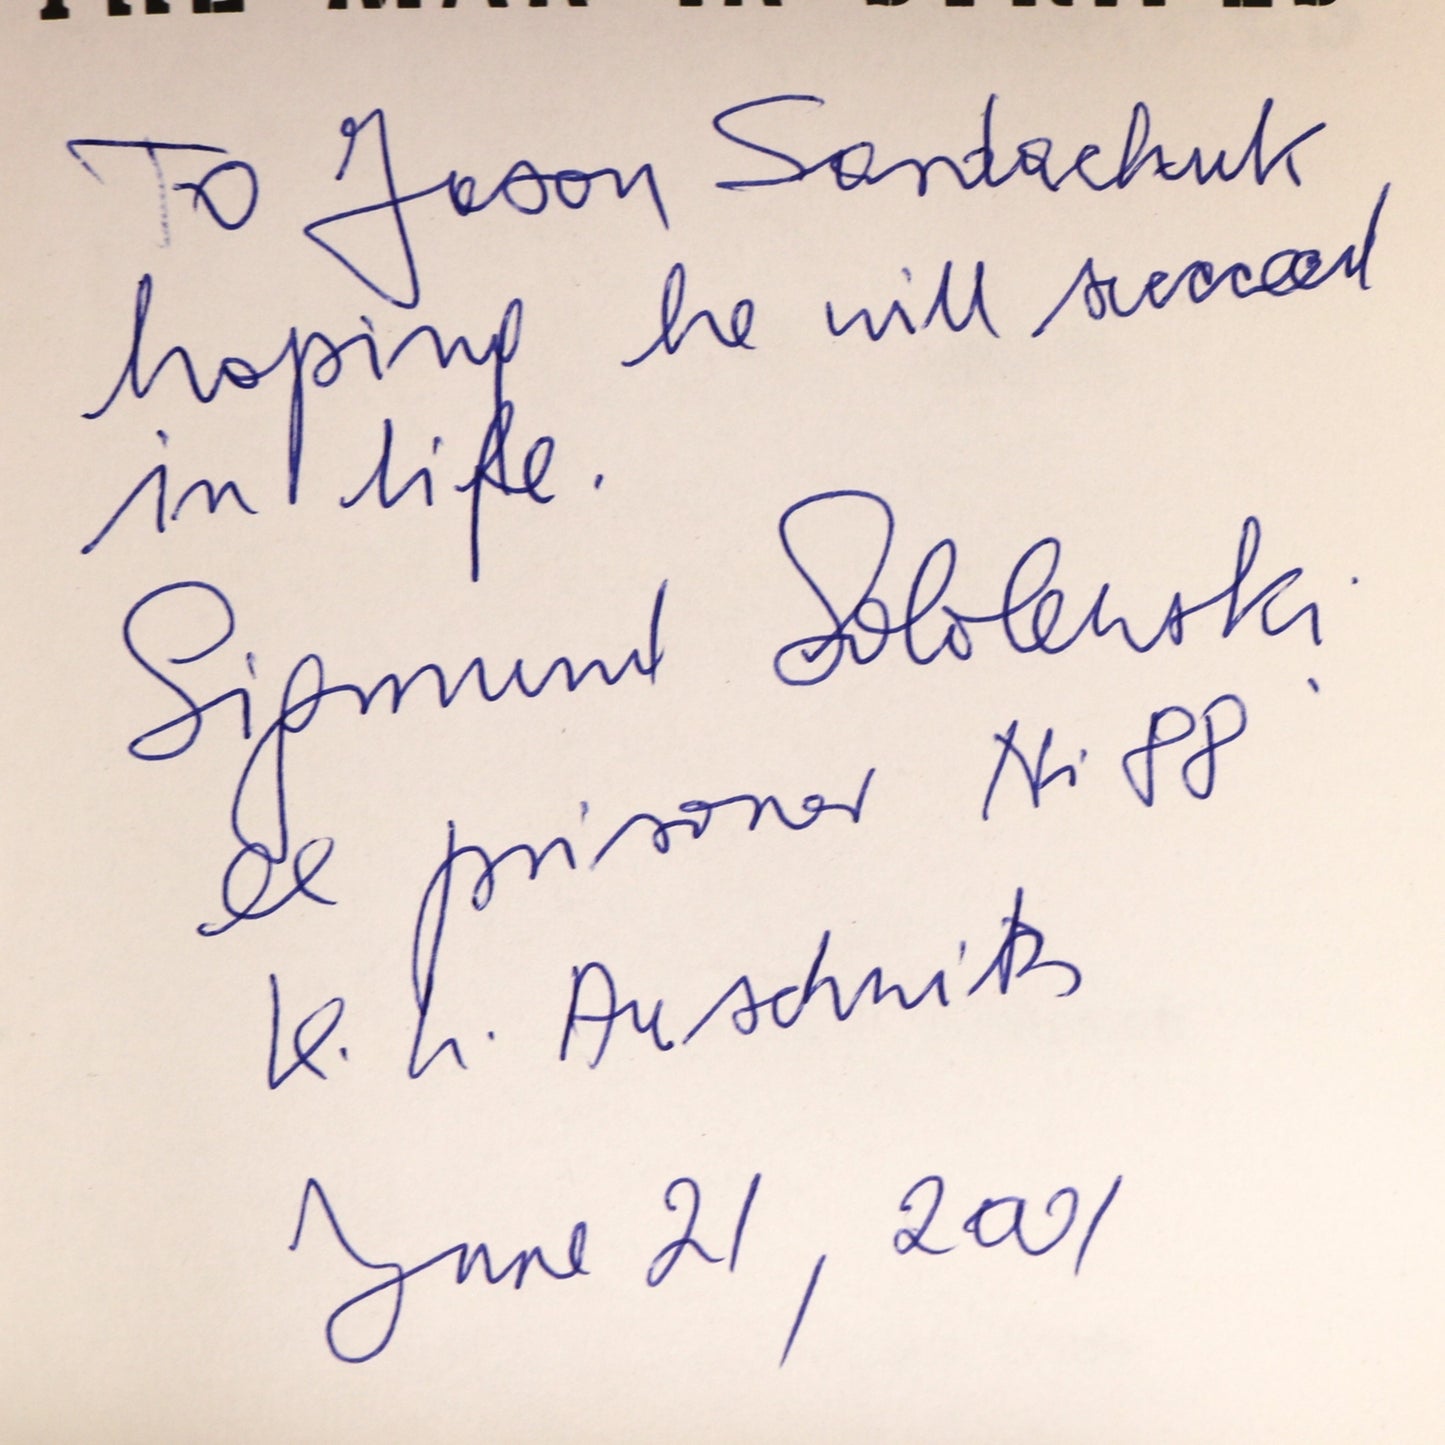 THE MAN IN STRIPES
To Jason Sandachuk,
hoping he will succeed
in life.
Sigmund Sobolewski
ex prisoner Nr 88
K. L. Auschwitz
June 21, 2001